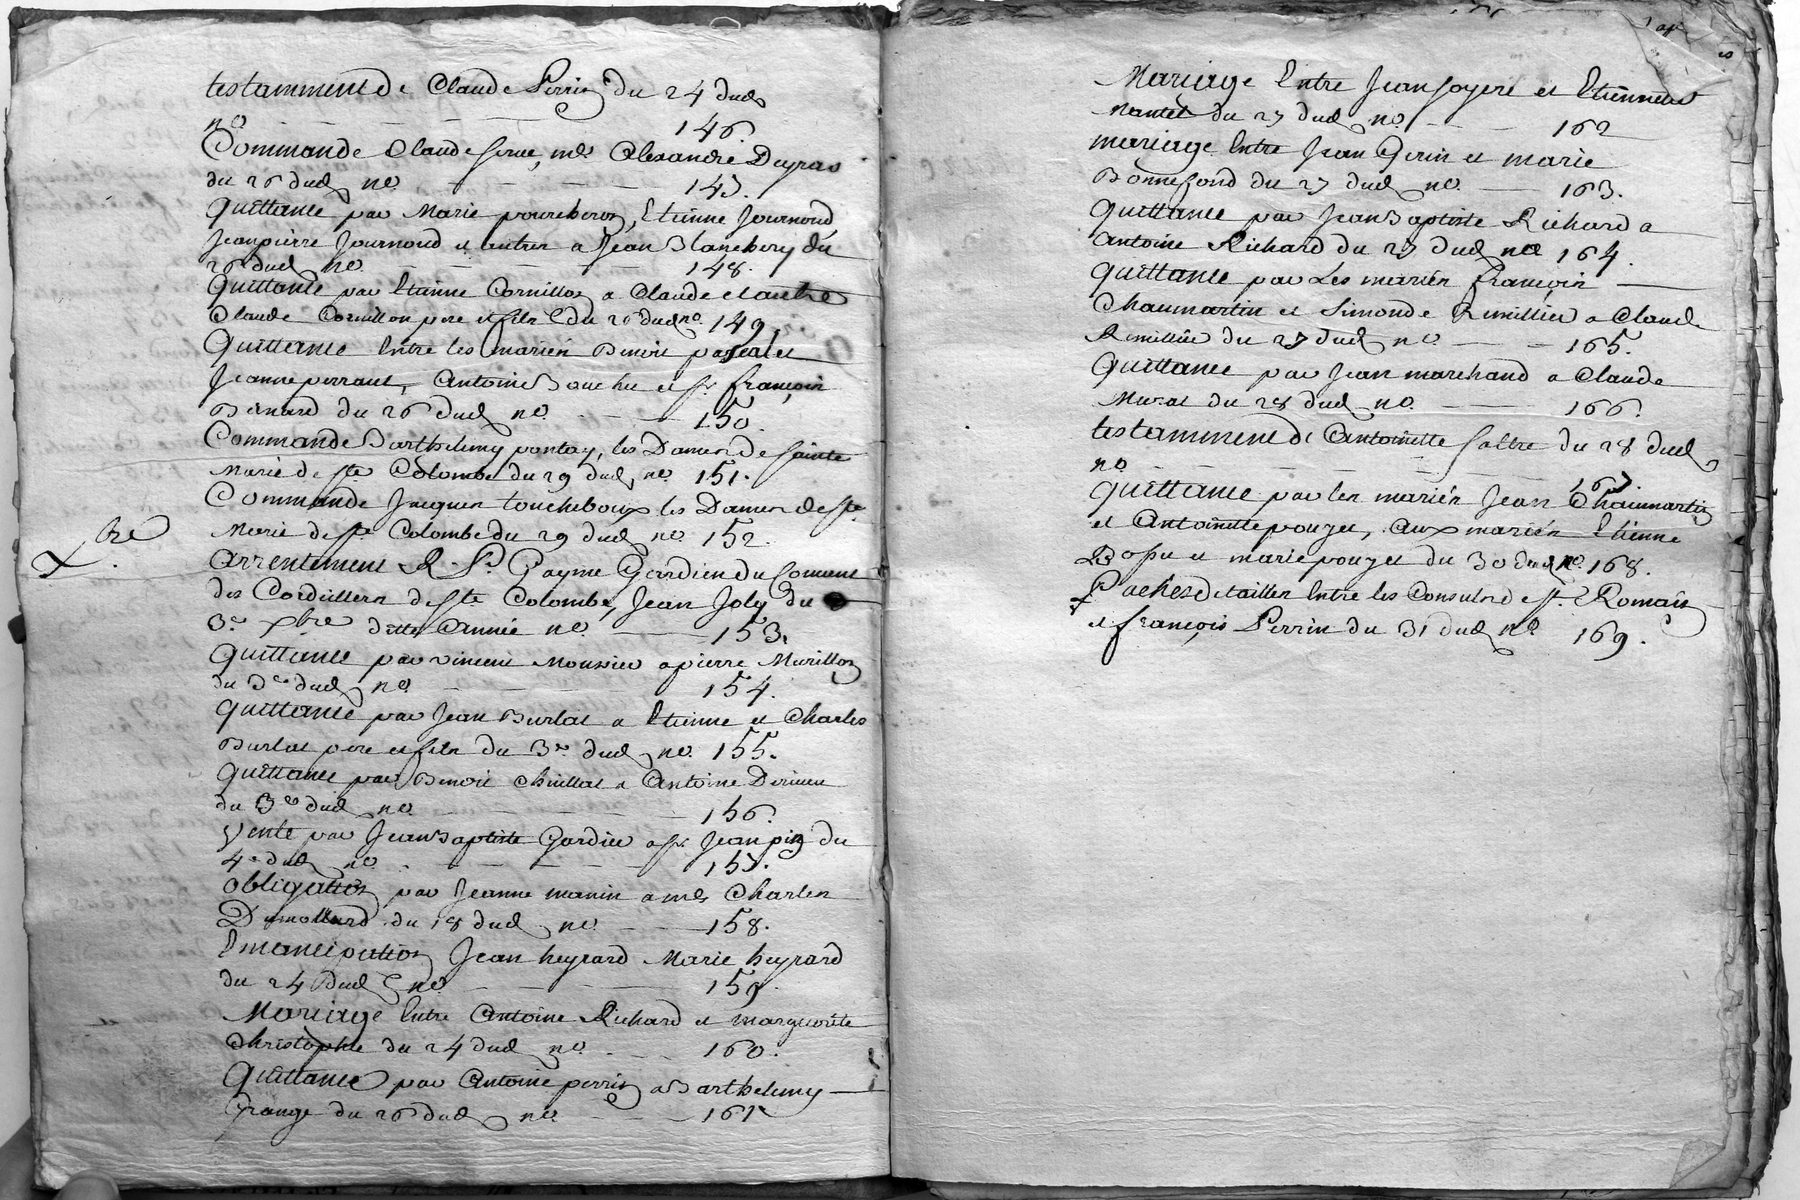 testamment de Claude Perrin du 24 dud
no 146.
Commande Claude serve, me Alexandre Duyras
du 26 dud no 147.
Quittance par Marie Journond, Etienne Journond,
Jeanpierre Journond et autres a Jean Blanchery du
26 dud no 148.
Quittance par Etienne Cornillon a Claude et autre
Claude Cornillon pere et fils du 26 dud no 149.
Quittance Entre les mariés Benoit pascal et
Jeanne perraut, Antoine Bouchu et sr. françois
Benard du 26 dud no 150.
Commande Barthelemy pontay, les Dames de sainte
Marie de ste Colombe du 29 dud no 151.
Commande Jacques toucheboux les Dames de ste
Marie de ste Colombe du 29 dud no 152.
xbre
arrentement R. P. Payme Gardien du Couvent
des Cordelliers de ste Colombe, Jean Joly du
3e xbre ditte Année no 153.
Quittance par vincent Moussier a pierre Murillon
du 3e dud no 154.
Quittance par Jean Burlat a Etienne et Charles
Burlat pere et fils du 3e dud no 155.
Quittance par Benoit Chuillat a Antoine
du 3e dud no 156.
Vente par Jean Baptiste Gordier a sr Jean pin du
4e dud no 157.
obligation par Jeanne manin a me Charles
Dumollard du 18 dud no 158.
Emancipation Jean heyrard Marie heyrard
du 24 dud no 159.
Mariage Entre Antoine Richard et marguerite
Christophle du 24 dud no 160.
Quittance par Antoine perrin a Barthelemy
Grange du 26 dud no 161
Mariage Entre Jean soyere et Etiennette
Mantel du 27 dud no 162
mariage Entre Jean Gerin et marie
Bonnefond du 27 dud no 163.
Quittance par Jean Baptiste Richard a
Antoine Richard du 27 dud no 164.
Quittance par Les mariés françois
Chaumartin et Simonde Remillier a Claude
Remillier du 27 dud no 165.
Quittance par Jean marchand a Claude
Murat du 28 dud no 166.
testamment de Antoinette faltre du 28 dud
no 167
Quittance par les mariés Jean Chaumartin
et Antoinette pouzet, aux mariés Etienne
Bossu et marie pouzet du 30 dud no 168.
Paches de tailles Entre les Consuls de st. Romain
et françois Perrin du 31 dud no 169.